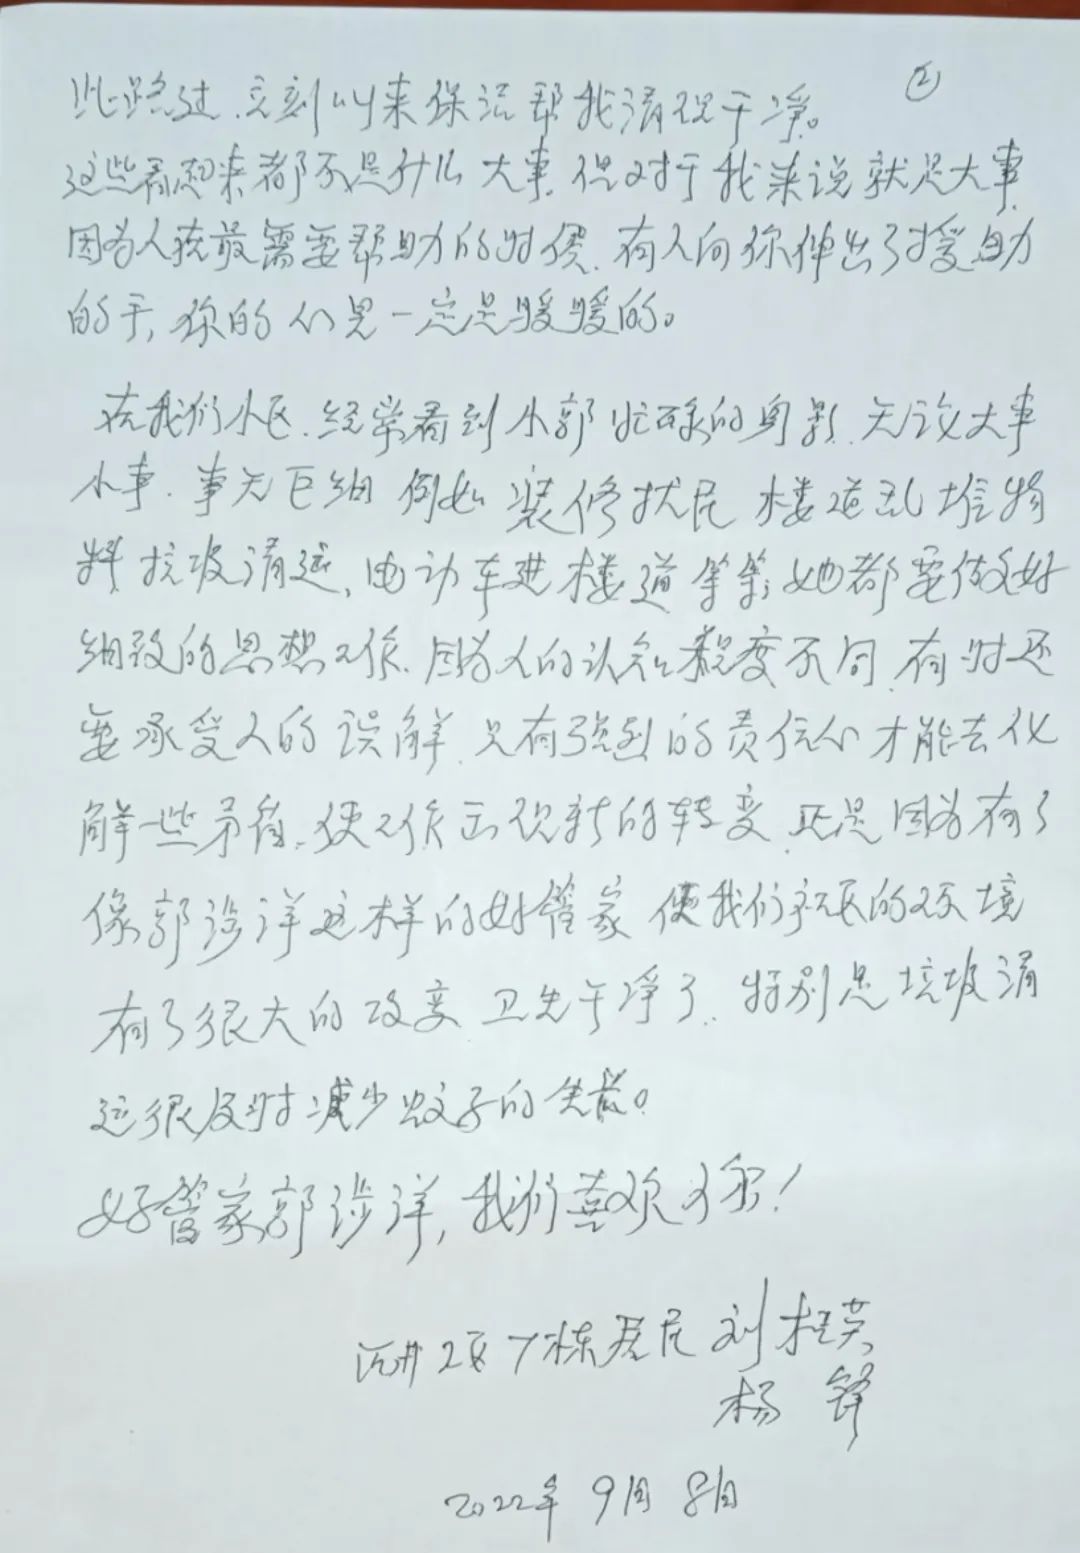 ②
此路过、立刻叫来保洁帮我清理干净。
这些看起来都不是什么大事、但对于我来说就是大事、
因为人在最需要帮助的时候、有人向你伸出了援助
的手，你的心里一定是暖暖的。
在我们小区、经常看到小郭忙碌的身影、无论大事
小事、事无巨细 例如 装修扰民 楼道乱堆物
料 垃圾清运、电动车进楼道等等；她都要做好
细致的思想工作、因为人的认知程度不同、有时还
要承受人的误解、只有强烈的责任心才能去化
解一些矛盾、使工作出现新的转变、正是因为有了
像郭涉洋这样的好管家 使我们社区的环境
有了很大的改变 卫生干净了、特别是垃圾清
运很及时减少蚊子的
好管家郭涉洋，我们喜欢你！
2区7栋居民 刘桂英
杨 锋
2022年 9月 8日